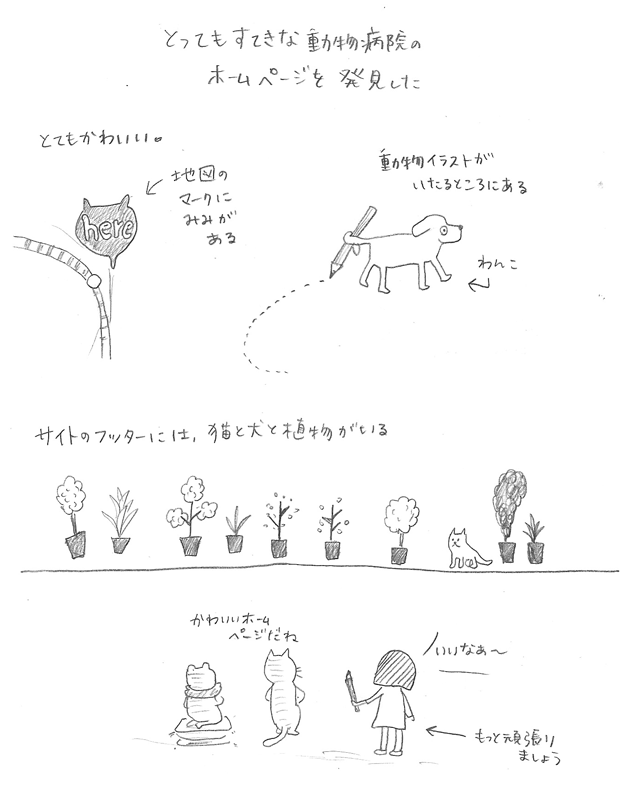 とってもすてきな動物病院の
ホームページを発見した
とてもかわいい。
地図の
マークに
みみが
ある
here
動物イラストが
いたるところにある
わんこ
サイトのフッターには、猫と犬と植物がいる
かわいいホーム
ページだね
いいなぁ〜
もっと頑張り
ましょう